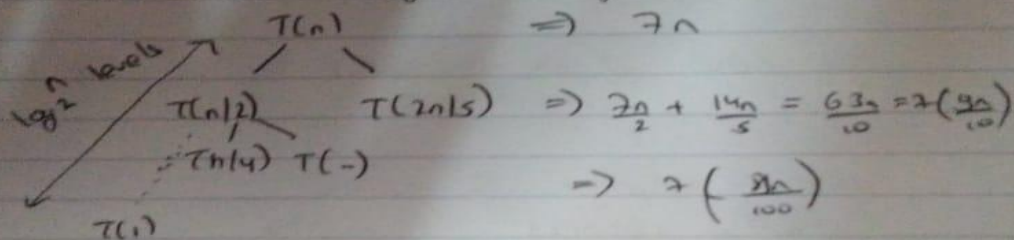 T(n) => 7n
log2 n levels
T(n/2) T(2n/5) => 7n/2 + 14n/5 = 63n/10 = 7(9n/10)
T(n/4) T(-) => 7(81n/100)
T(1)